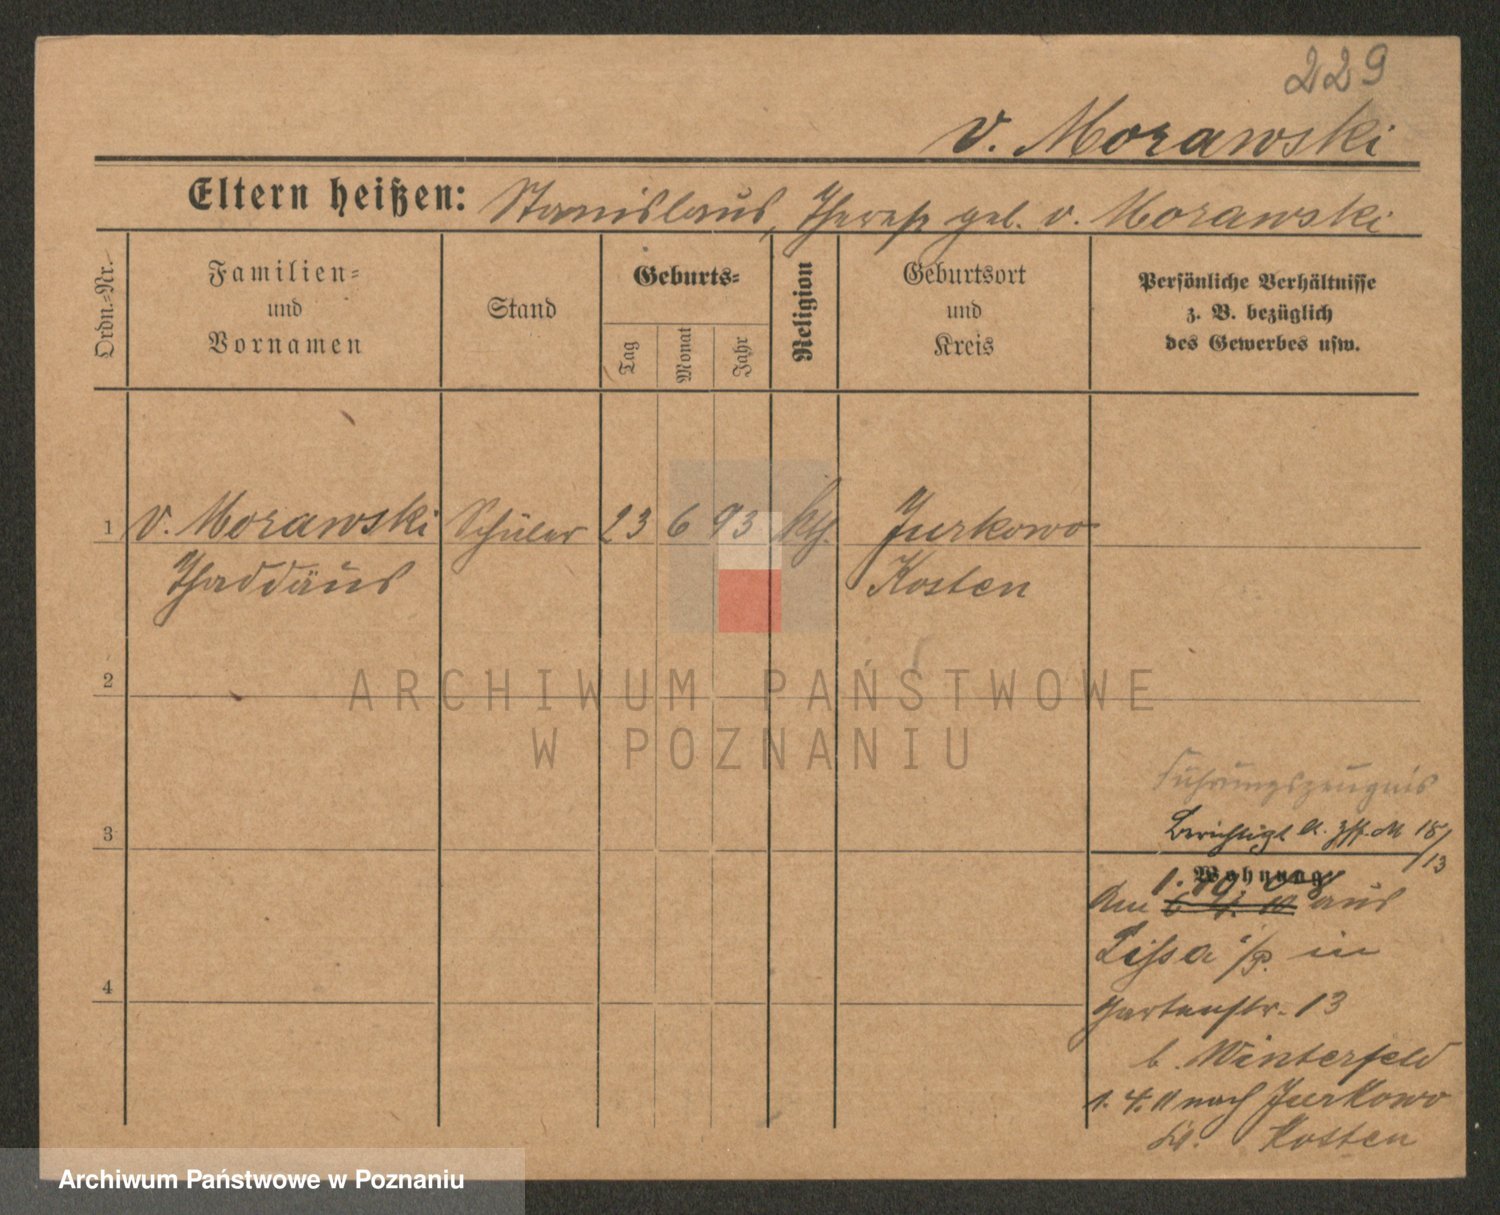 229
v. Morawski
Eltern heißen: Stanislaus, Therese geb. v. Morawski
Ordn.=Nr.
Familien=
und
Vornamen
Stand
Geburts=
Tag
Monat
Jahr
Religion
Geburtsort
und
Kreis
Persönliche Verhältnisse
z. B. bezüglich
des Gewerbes usw.
1 v. Morawski Schüler 23 6 93 kth. Jurkowo
Thaddäus Kosten
2
ARCHIWUM PAŃSTWOWE
W POZNANIU
Führungszeugnis
3 Berichtigt 18/13
Wohnung
1. 10.
Am 6 4. 10 aus
Lissa i/P. in
4 Gartenstr. 13
b. Winterfeld
1. 4. 11 nach Jurkowo
Kr. Kosten
Archiwum Państwowe w Poznaniu